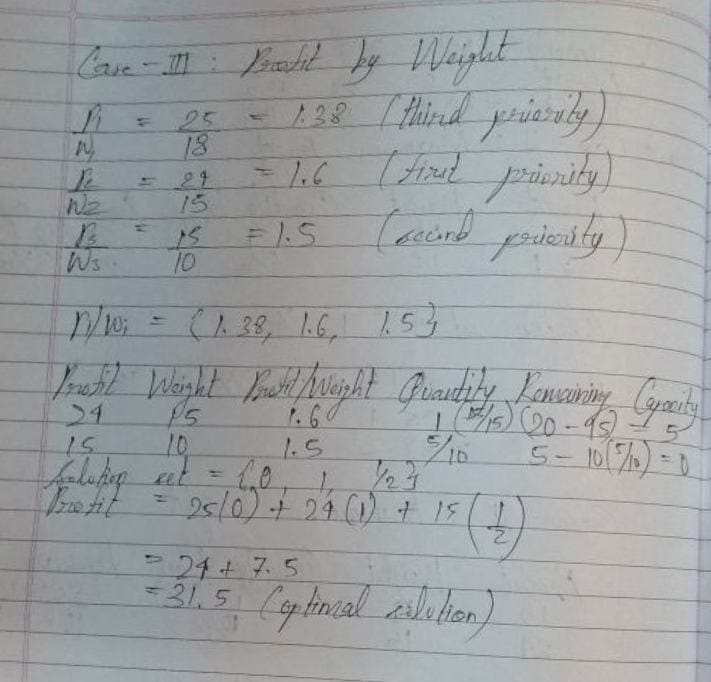 Case - III : Profit by Weight
P1/W1 = 25/18 = 1.38 (third priority)
P2/W2 = 24/15 = 1.6 (first priority)
P3/W3 = 15/10 = 1.5 (second priority)
Pi/Wi = {1.38, 1.6, 1.5}
Profit Weight Profit/Weight Quantity Remaining Capacity
24 15 1.6 1 (15/15) (20 - 15) = 5
15 10 1.5 5/10 5 - 10(5/10) = 0
Solution set = {0, 1, 1/2}
Profit = 25(0) + 24(1) + 15(1/2)
= 24 + 7.5
= 31.5 (optimal solution)